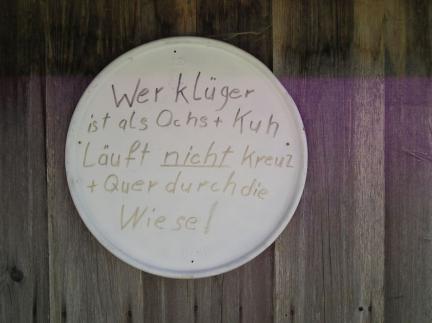 Wer klüger
ist als Ochs + Kuh
Läuft nicht Kreuz
+ Quer durch die
Wiese!